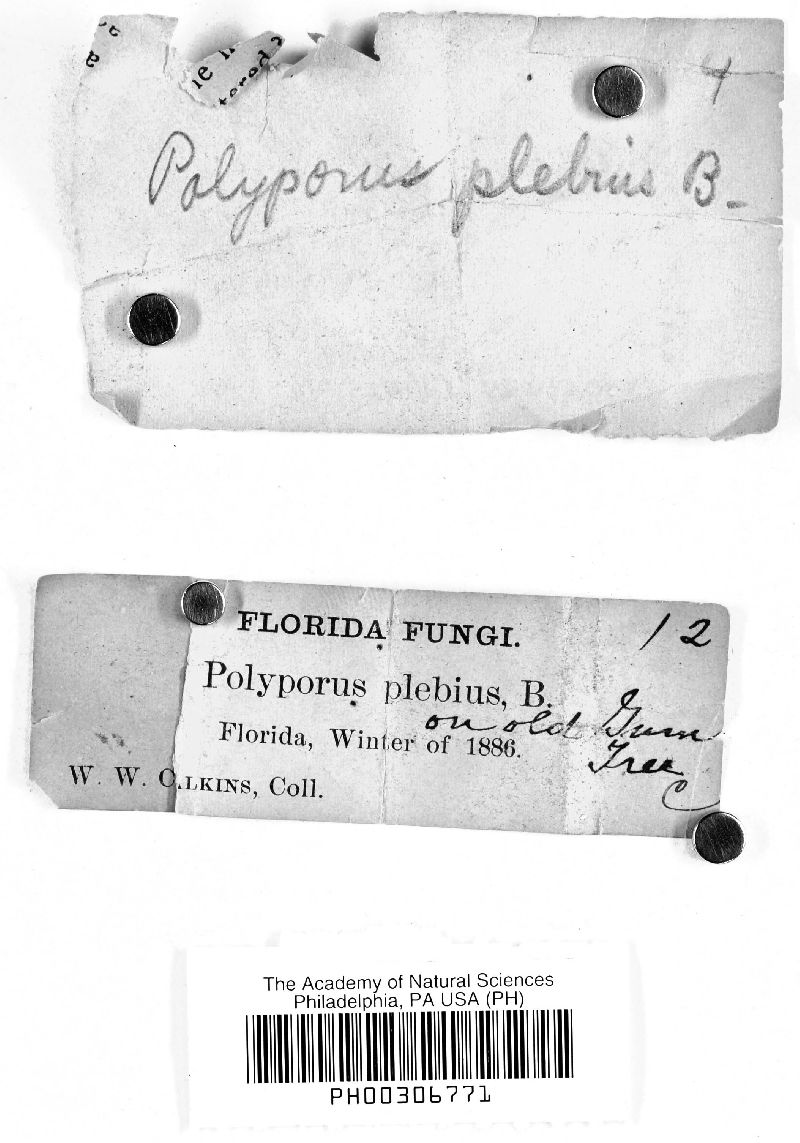 4
Polyporus plebius B.
FLORIDA FUNGI.
12
Polyporus plebius, B.
on old Gum
Tree
Florida, Winter of 1886.
C
W. W. CALKINS, Coll.
The Academy of Natural Sciences
Philadelphia, PA USA (PH)
PH00306771